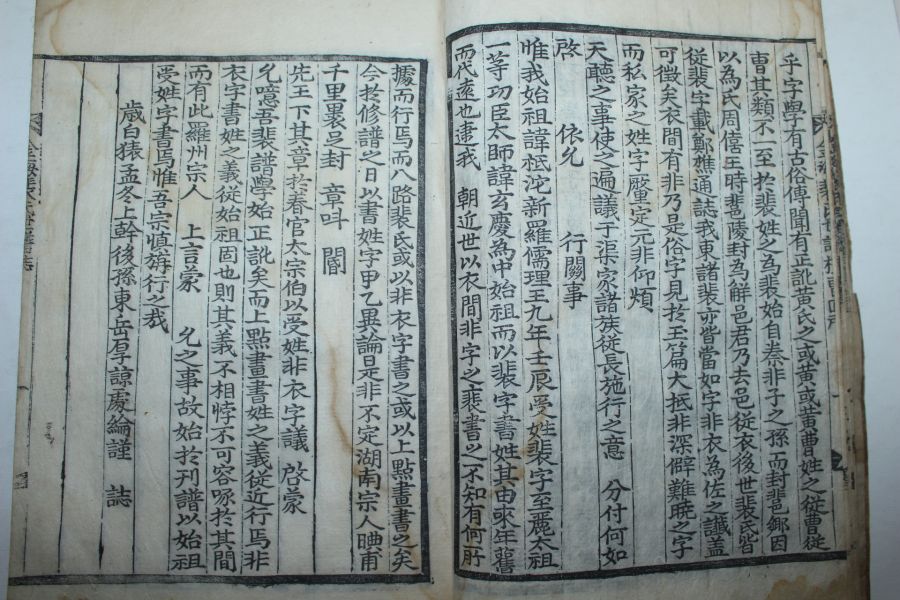 乎字學有古俗傳聞有正訛黃氏之或黃或黄曹姓之從曺從
曹其類不一至於裴姓之為裴始自秦非子之孫而封䓲鄉因
以為氏周僖王時䓲陵封為解邑君乃去邑從衣後世裴氏皆
從裴字載鄭樵通誌我東諸裴亦皆當如字非衣為佐之議盖
可徵矣衣間有非乃是俗字見於玉篇大抵非深僻難曉之字
而私家之姓字釐定元非仰煩
天聽之事使之遍議于渠家諸族從長施行之意 分付何如
啓 依允 行關事
惟我始祖諱祗沱新羅儒理王九年壬辰受姓裴字至麗太祖
一等功臣太師諱玄慶為中始祖而以裴字書姓其由來年舊
而代遠也逮我 朝近世以衣間非字之裵書之不知有何所
據而行焉而八路裴氏或以非衣字書之或以上點畫書之矣
今於修譜之日以書姓字甲乙異論是非不定湖南宗人
千里裹足封 章呌 閽
先王下其章於春官太宗伯以受姓非衣字議 啓蒙
允噫吾裴譜學始正訛矣而上點畫書姓之義從近行焉非
衣字書姓之義從始祖固也則其義不相悖不可容喙於其間
而有此羅州宗人 上言蒙 允之事故始於刊譜以始祖
受姓字書焉惟吾宗慎旃行之哉
歲白猿孟冬上幹後孫東岳厚諒處綸謹 誌